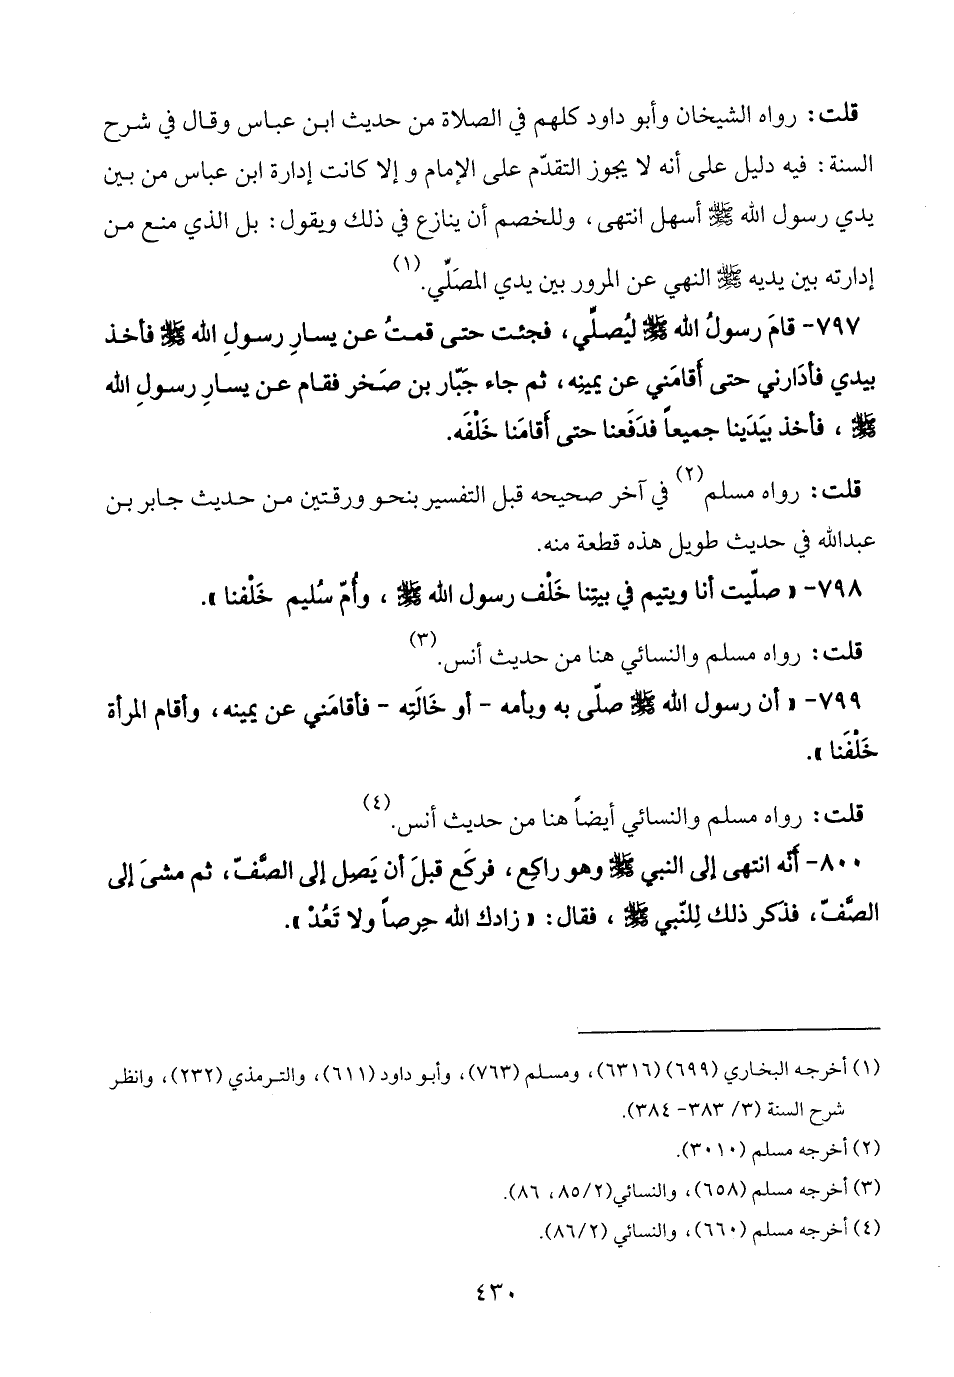 قلت: رواه الشيخان وأبو داود كلهم في الصلاة من حديث ابن عباس وقال في شرح
السنة: فيه دليل على أنه لا يجوز التقدّم على الإمام و إلا كانت إدارة ابن عباس من بين
يدي رسول الله ﷺ أسهل انتهى، وللخصم أن ينازع في ذلك ويقول: بل الذي منع من
إدارته بين يديه ﷺ النهي عن المرور بين يدي المصَلِّي.(١)
٧٩٧- قامَ رسولُ الله ﷺ ليُصلِّي، فجئت حتى قمتُ عن يسارِ رسولِ الله ﷺ فأخذ
بيدي فأدَارني حتى أَقامَني عن يمينِه، ثم جاء جَبّار بن صَخر فقام عن يسارِ رسولِ الله
ﷺ ، فأخذ بيَدَينا جميعاً فدَفَعنا حتى أَقامَنا خَلْفَه.
قلت: رواه مسلم(٢) في آخر صحيحه قبل التفسير بنحو ورقتين من حديث جابر بن
عبدالله في حديث طويل هذه قطعة منه.
٧٩٨- « صلّيت أنا ويتيم في بيتِنا خَلْف رسول الله ﷺ ، وأُمّ سُليم خَلْفنا ».
قلت: رواه مسلم والنسائي هنا من حديث أنس.(٣)
٧٩٩- « أن رسول الله ﷺ صلّى به وبأمه - أو خَالَتِه - فأقامَني عن يمينه، وأقام المرأة
خَلْفَنا ».
قلت: رواه مسلم والنسائي أيضاً هنا من حديث أنس.(٤)
٨٠٠- أَنّه انتهى إلى النبي ﷺ وهو راكِع، فركَع قبلَ أن يَصِل إلى الصَّفّ، ثم مشىَ إلى
الصَّفّ، فذكَر ذلك لِلنّبي ﷺ ، فقال: « زادك الله حِرصاً ولا تَعُدْ ».
(١) أخرجه البخاري (٦٩٩) (٦٣١٦)، ومسلم (٧٦٣)، وأبو داود (٦١١)، والترمذي (٢٣٢)، وانظر
شرح السنة (٣/ ٣٨٣- ٣٨٤).
(٢) أخرجه مسلم (٣٠١٠).
(٣) أخرجه مسلم (٦٥٨)، والنسائي(٨٥/٢، ٨٦).
(٤) أخرجه مسلم (٦٦٠)، والنسائي (٨٦/٢).
٤٣٠